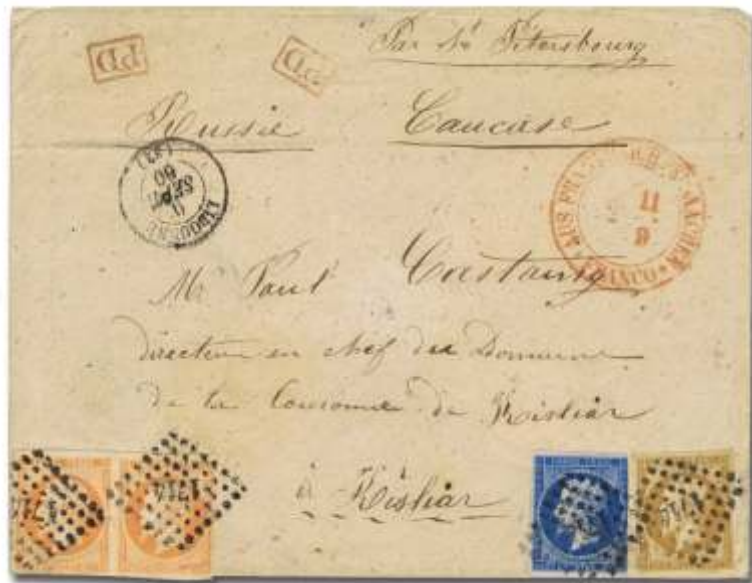 Par St Pétersbourg
PD PD
Russie Caucase
LIBOURNE (32)
SEPT 60
AUS FRANKREICH AACHEN FRANCO
11
9
Mr Paul Castaing
directeur en chef du Domaine
de la Couronne de Kisliar
à Kisliar
1714 1714 1714